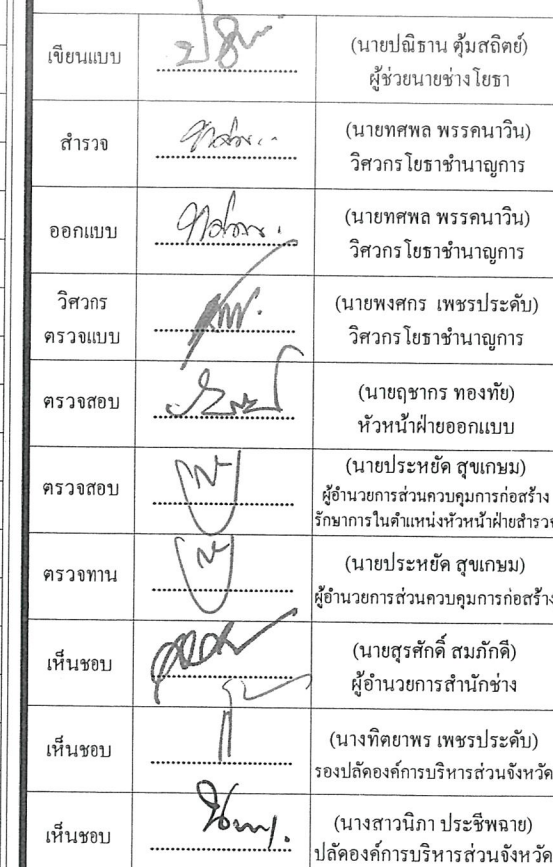 เขียนแบบ
(นายปณิธาน ตุ้มสถิตย์)
ผู้ช่วยนายช่างโยธา
สำรวจ
(นายทศพล พรรคนาวิน)
วิศวกรโยธาชำนาญการ
ออกแบบ
(นายทศพล พรรคนาวิน)
วิศวกรโยธาชำนาญการ
วิศวกร
ตรวจแบบ
(นายพงศกร เพชรประดับ)
วิศวกรโยธาชำนาญการ
ตรวจสอบ
(นายฤชากร ทองทัย)
หัวหน้าฝ่ายออกแบบ
ตรวจสอบ
(นายประหยัด สุขเกษม)
ผู้อำนวยการส่วนควบคุมการก่อสร้าง
รักษาการในตำแหน่งหัวหน้าฝ่ายสำรวจ
ตรวจทาน
(นายประหยัด สุขเกษม)
ผู้อำนวยการส่วนควบคุมการก่อสร้าง
เห็นชอบ
(นายสุรศักดิ์ สมภักดี)
ผู้อำนวยการสำนักช่าง
เห็นชอบ
(นางทิตยาพร เพชรประดับ)
รองปลัดองค์การบริหารส่วนจังหวัด
เห็นชอบ
(นางสาวนิภา ประชีพฉาย)
ปลัดองค์การบริหารส่วนจังหวัด